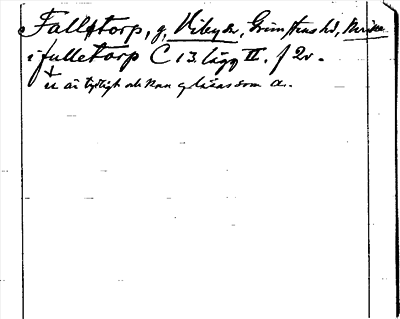 Falltorp, g, Viby sn, Grimstens hd, Nerike
i fulletorp C 13. lägg II. f 2v.
u är tydligt och kan ej läsas som a.